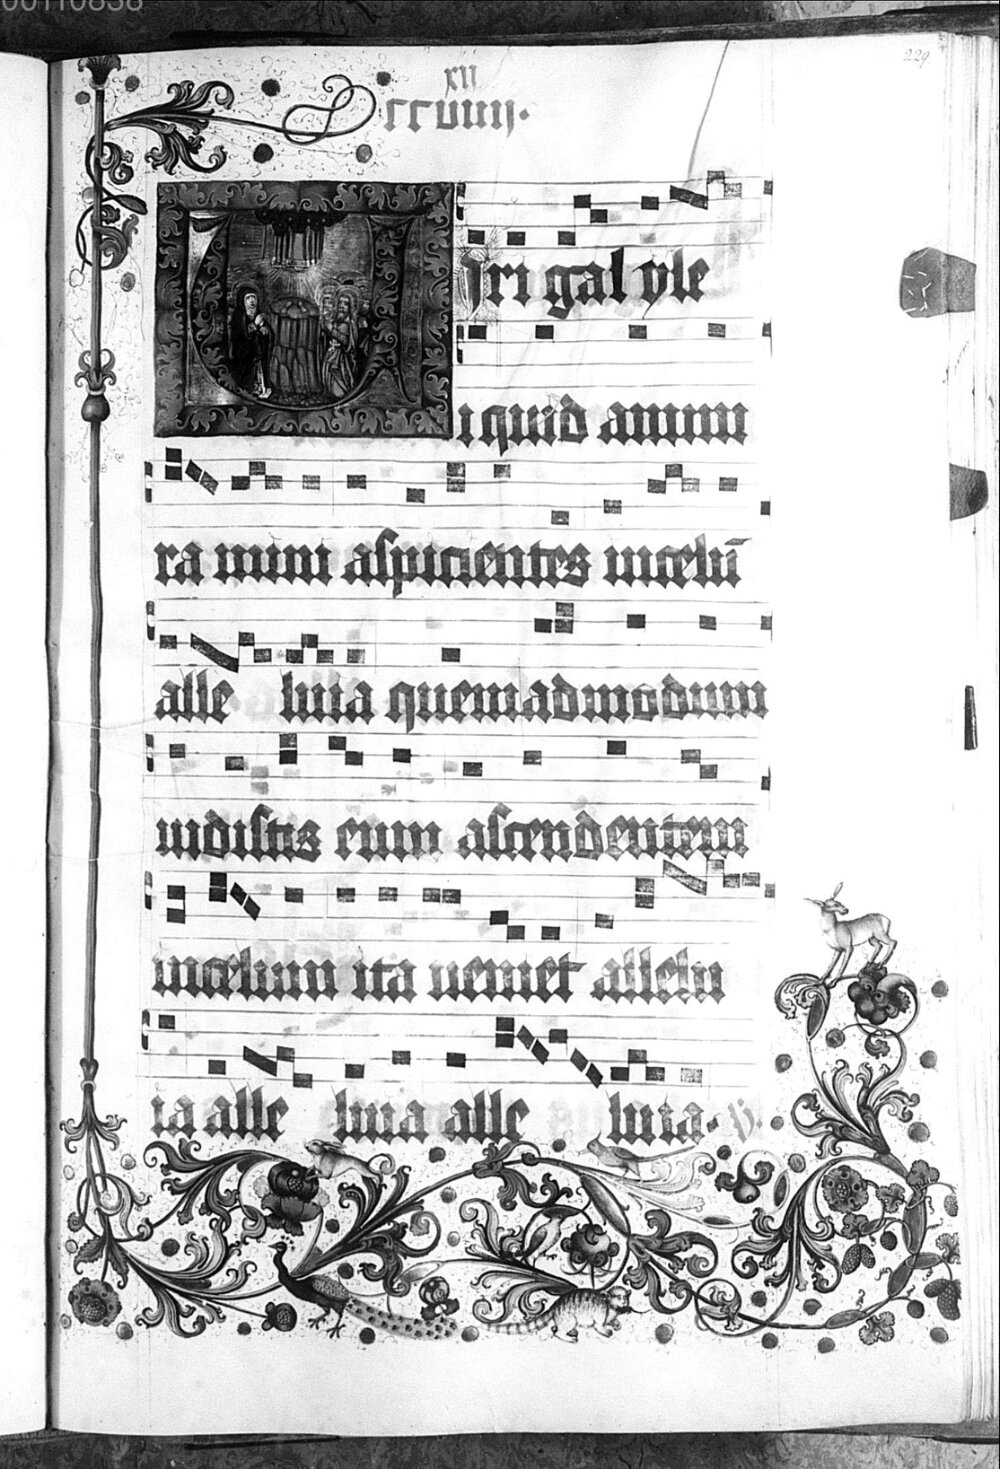 00110838
229
xii
ccviiii.
Viri gal yle
i quid ammi
ra mini aspicientes incelū
alle luia quemadmodum
uidistis eum ascendentem
incelum ita ueniet allelu
ia alle luia alle luia. ℣.